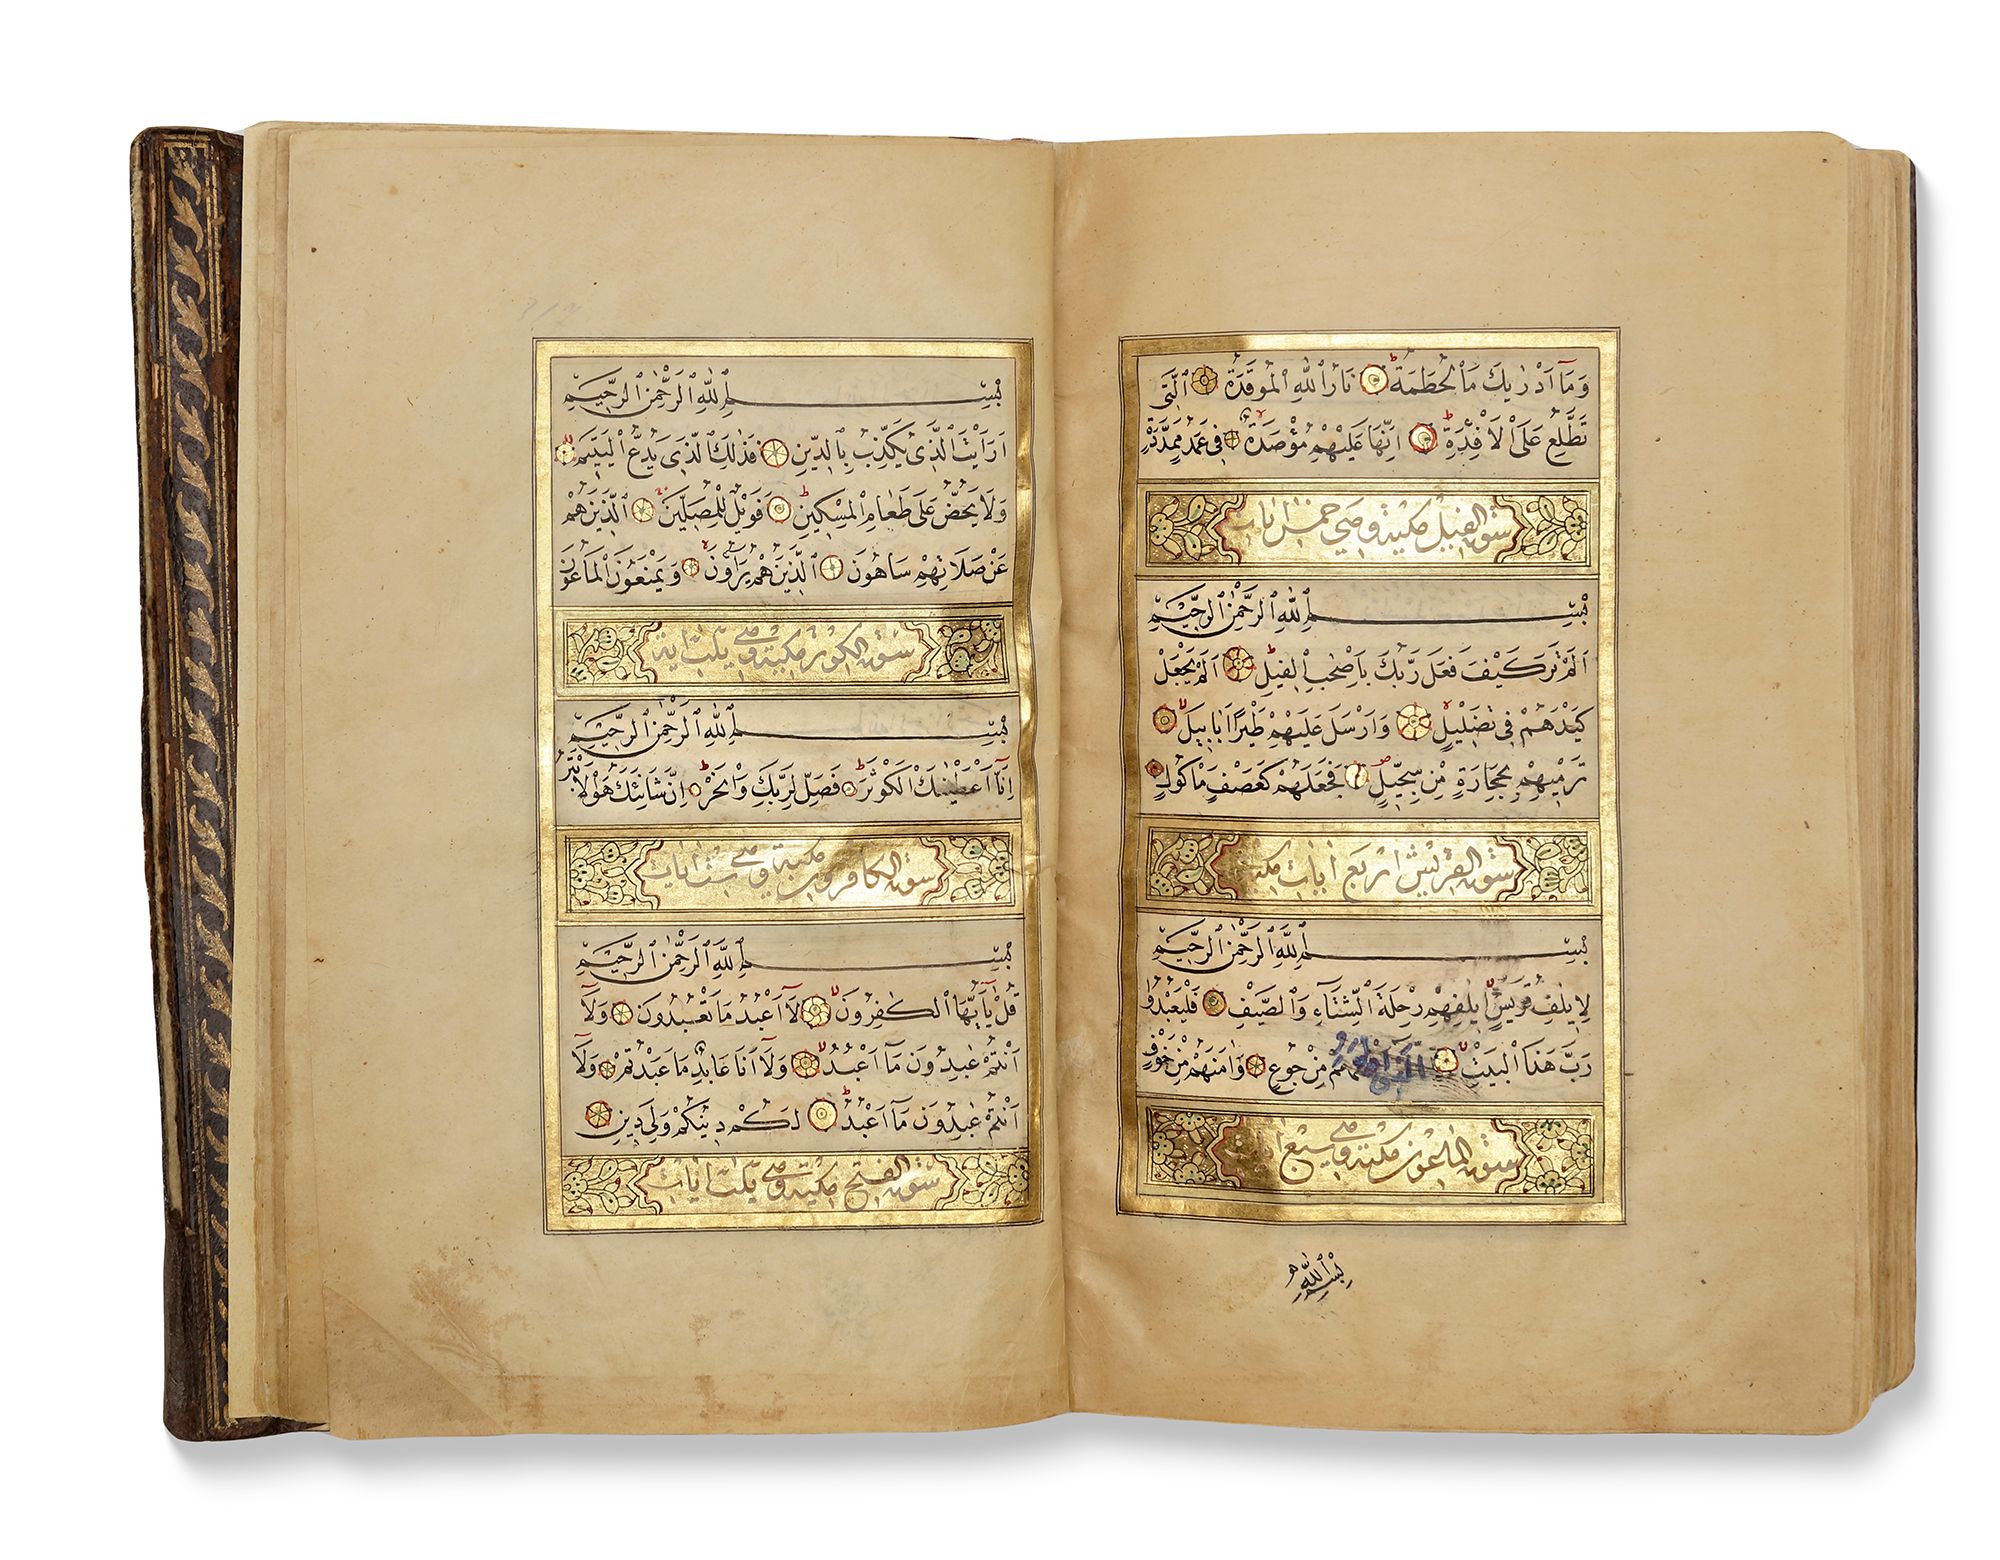 وَمَآ اَدْرٰيكَ مَا الْحُطَمَةُ نَارُ اللّٰهِ الْمُوقَدَةُ الَّتِى
تَطَّلِعُ عَلَى الْاَفْـِٔدَةِ اِنَّهَا عَلَيْهِمْ مُؤْصَدَةٌ فِى عَمَدٍ مُمَدَّدَةٍ
سورة الفيل مكية وهي خمس ايات
بِسْمِ اللّٰهِ الرَّحْمٰنِ الرَّحِيمِ
اَلَمْ تَرَ كَيْفَ فَعَلَ رَبُّكَ بِاَصْحٰبِ الْفِيلِ اَلَمْ يَجْعَلْ
كَيْدَهُمْ فِى تَضْلِيلٍ وَاَرْسَلَ عَلَيْهِمْ طَيْرًا اَبَابِيلَ
تَرْمِيهِمْ بِحِجَارَةٍ مِنْ سِجِّيلٍ فَجَعَلَهُمْ كَعَصْفٍ مَاْكُولٍ
سورة القريش اربع ايات مكية
بِسْمِ اللّٰهِ الرَّحْمٰنِ الرَّحِيمِ
لِاِيلٰفِ قُرَيْشٍ اِيلٰفِهِمْ رِحْلَةَ الشِّتَآءِ وَالصَّيْفِ فَلْيَعْبُدُوا
رَبَّ هٰذَا الْبَيْتِ مِنْ جُوعٍ وَاٰمَنَهُمْ مِنْ خَوْفٍ
سورة الماعون مكية وهي سبع ايات
بِسْمِ اللّٰهِ
بِسْمِ اللّٰهِ الرَّحْمٰنِ الرَّحِيمِ
اَرَاَيْتَ الَّذِى يُكَذِّبُ بِالدِّينِ فَذٰلِكَ الَّذِى يَدُعُّ الْيَتِيمَ
وَلَا يَحُضُّ عَلَى طَعَامِ الْمِسْكِينِ فَوَيْلٌ لِلْمُصَلِّينَ الَّذِينَ هُمْ
عَنْ صَلَاتِهِمْ سَاهُونَ الَّذِينَ هُمْ يُرَاؤُنَ وَيَمْنَعُونَ الْمَاعُونَ
سورة الكوثر مكية وهي ثلث اية
بِسْمِ اللّٰهِ الرَّحْمٰنِ الرَّحِيمِ
اِنَّآ اَعْطَيْنٰكَ الْكَوْثَرَ فَصَلِّ لِرَبِّكَ وَانْحَرْ اِنَّ شَانِئَكَ هُوَ الْاَبْتَرُ
سورة الكافرون مكية وهي ست ايات
بِسْمِ اللّٰهِ الرَّحْمٰنِ الرَّحِيمِ
قُلْ يَآ اَيُّهَا الْكٰفِرُونَ لَآ اَعْبُدُ مَا تَعْبُدُونَ وَلَآ
اَنْتُمْ عٰبِدُونَ مَآ اَعْبُدُ وَلَآ اَنَا عَابِدٌ مَا عَبَدْتُمْ وَلَآ
اَنْتُمْ عٰبِدُونَ مَآ اَعْبُدُ لَكُمْ دِينُكُمْ وَلِىَ دِينِ
سورة الفتح مكية وهي ثلث ايات